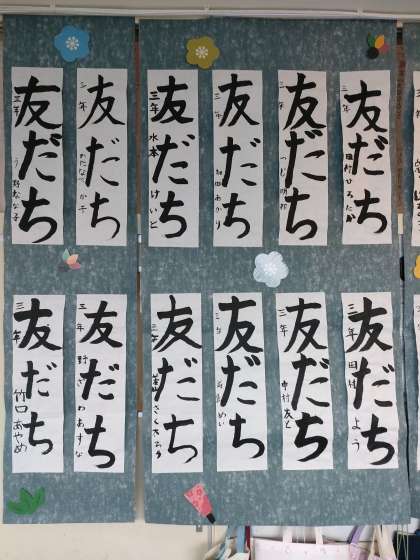 友だち
三年
田村ひろたか
友だち
三年
つじ
友だち
三年
あかり
友だち
三年
水本
けいと
友だち
三年
わたなべ
友だち
三年
友だち
三年
田
よう
友だち
三年
中村友と
友だち
三年
めい
友だち
三年
さくたろう
友だち
三年
野ざわあすな
友だち
三年
竹口あやめ